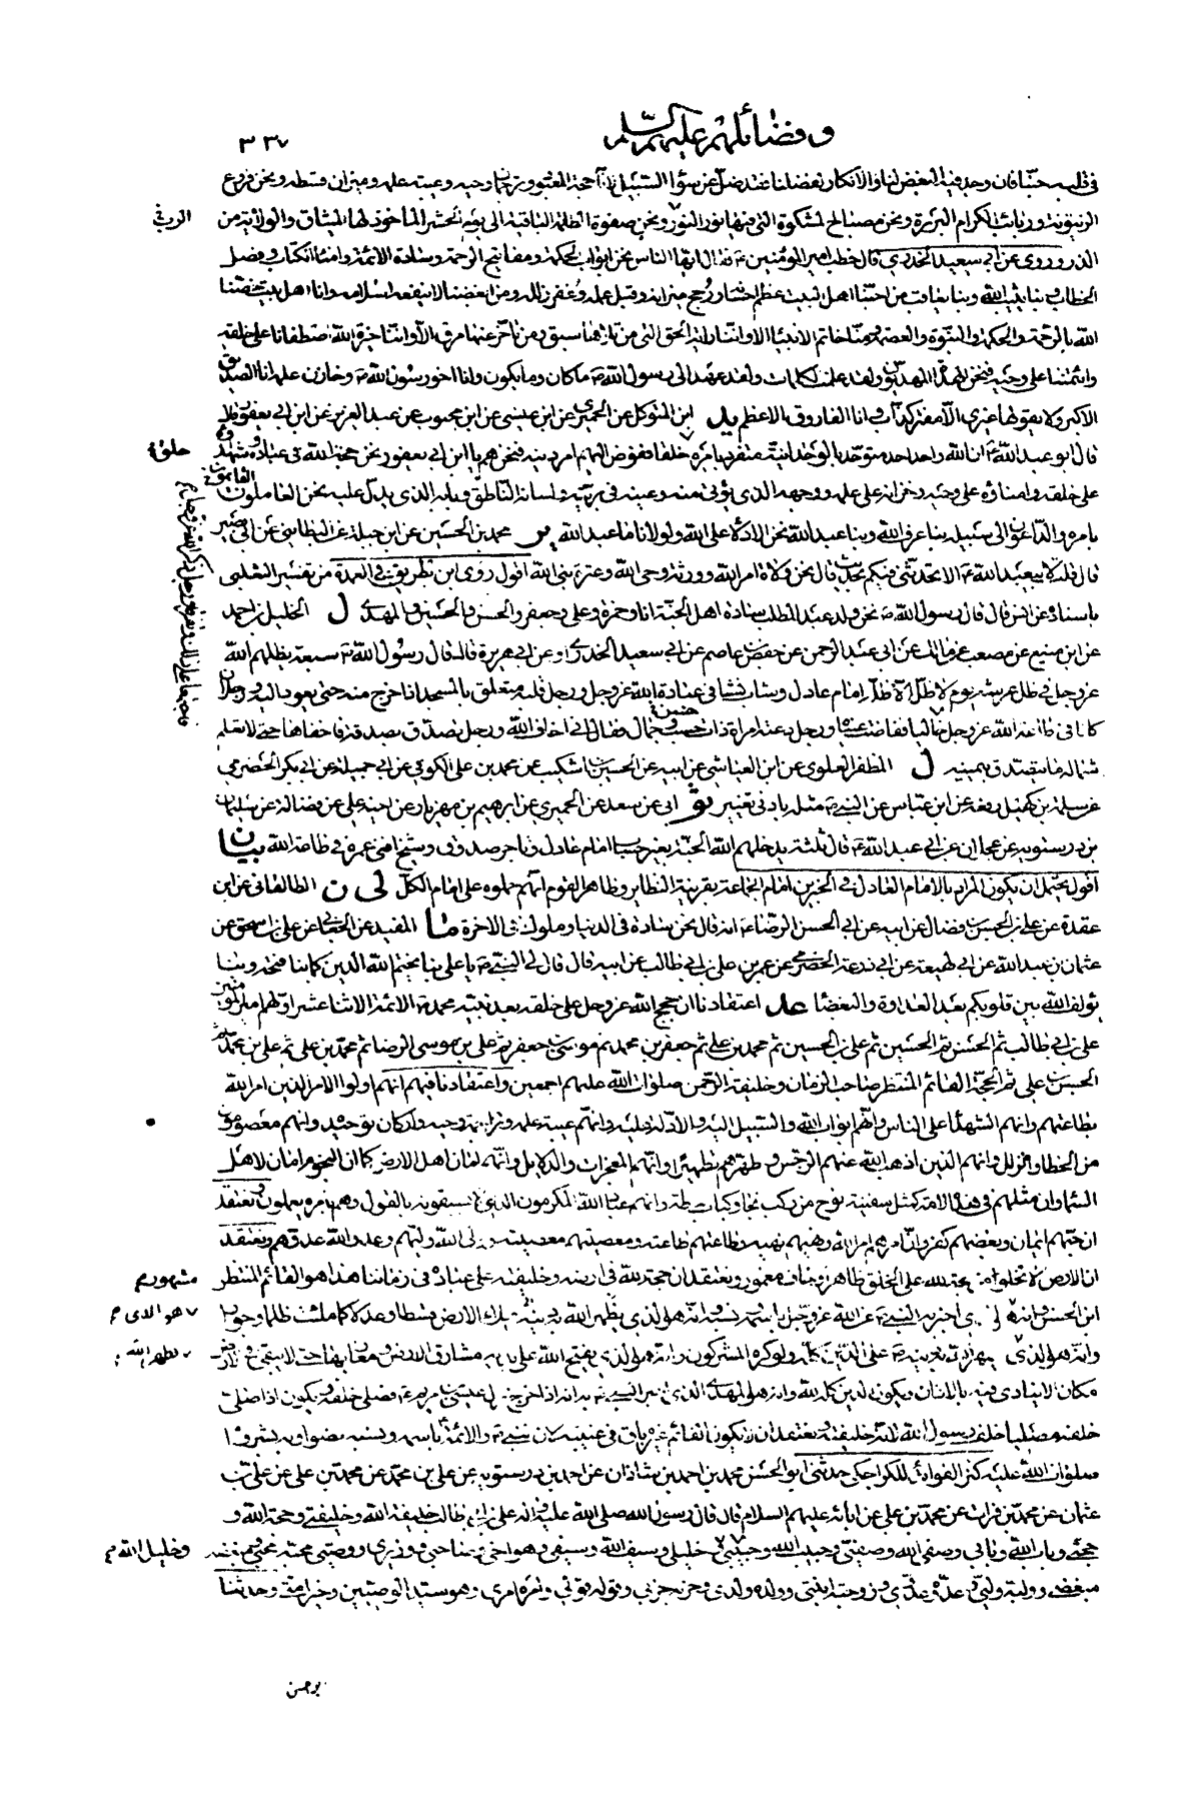 وفضائلهم عليهم السلام
٣٣٧
في قلبه حبنا فان وجد فيه البغض لنا والانكار لفضلنا فقد ضل عن سواء السبيل لانا حجة المعبود وترجمان وحيه وعيبة علمه وميزان قسطه ونحن فروع
الزيتونة وربائب الكرام البررة ونحن مصباح المشكوة التي فيها نور النور ونحن صفوة الكلمة الباقية الى يوم الحشر المأخوذ لها الميثاق والولاية من
الذر وروي عن ابي سعيد الخدري قال خطب امير المؤمنين ع فقال ايها الناس نحن ابواب الحكمة ومفاتيح الرحمة وسادة الائمة وامناء الكتاب وفصل
الخطاب وبنا يثيب الله وبنا يعاقب من احبنا اهل البيت عظم احسانه ورجح ميزانه وقبل عمله وغفر زلله ومن ابغضنا لا ينفعه اسلامه وانا اهل بيت خصنا
الله بالرحمة والحكمة والنبوة والعصمة ومنا خاتم الانبياء الا وانا راية الحق التي من تلاها سبق ومن تأخر عنها مرق الا وانا خيرة الله اصطفانا على خلقه
وائتمننا على وحيه فنحن الهداة المهديون ولقد علمت الكلمات ولقد عهد الى رسول الله ص ما كان وما يكون وانا اخو رسول الله ص وخازن علمه انا الصديق
الاكبر ولا يقولها غيري الا مفتر كذاب وانا الفاروق الاعظم يد ابن المتوكل عن الحميري عن ابن عيسى عن ابن محبوب عن عبد العزيز عن ابن ابي يعفور
قال ابو عبد الله ع ان الله واحد احد متوحد بالوحدانية متفرد بامره خلق خلقا ففوض اليهم امر دينه فنحن هم يا ابن ابي يعفور نحن حجة الله في عباده وشهداؤه
على خلقه وامناؤه على وحيه وخزانه على علمه ووجهه الذي يؤتى منه وعينه في بريته ولسانه الناطق وبابه الذي يدل عليه نحن العاملون
بامره والداعون الى سبيله بنا عرف الله وبنا عبد الله نحن الادلاء على الله ولولانا ما عبد الله ير محمد بن الحسين عن ابن جبلة عن البطائني عن ابي بصير
قال قلت لابي عبد الله ع الا تحدثني فيكم بحديث قال نحن ولاة امر الله وورثة وحي الله وعترة نبي الله اقول روى ابن بطريق في العمدة من تفسير الثعلبي
باسناده عن انس قال قال رسول الله ص نحن ولد عبد المطلب سادة اهل الجنة انا وحمزة وعلي وجعفر والحسن والحسين والمهدي ل الخليل بن احمد
عن ابن منيع عن مصعب عن مالك عن ابي عبد الرحمن عن حفص بن عاصم عن ابي سعيد الخدري او عن ابي هريرة قال قال رسول الله ص سبعة يظلهم الله
عز وجل في ظل عرشه يوم لا ظل الا ظله امام عادل وشاب نشأ في عبادة الله عز وجل ورجل قلبه متعلق بالمسجد اذا خرج منه حتى يعود اليه ورجلان
كانا في طاعة الله عز وجل خاليا ففاضت عيناه ورجل دعته امراة ذات حسب وجمال فقال اني اخاف الله ورجل تصدق بصدقة فاخفاها حتى لا تعلم
شماله ما تتصدق بيمينه ل المظفر العلوي عن ابن العياشي عن ابيه عن الحسين بن اشكيب عن محمد بن علي الكوفي عن ابي جميلة عن ابي بكر الحضرمي
عن سلمة بن كهيل رفعه عن ابن عباس عن النبي ص مثله بادنى تغيير ثو ابي عن سعد عن الحميري عن ابراهيم بن مهزيار عن اخيه علي عن فضالة عن سليمان
بن درستويه عن عجلان عن ابي عبد الله ع قال ثلثة يدخلهم الله الجنة بغير حساب امام عادل وتاجر صدوق وشيخ افنى عمره في طاعة الله بيان
اقول يحتمل ان يكون المراد بالامام العادل في الخبرين امام الجماعة بقرينة النظاير وظاهر القوم انهم حملوه على امام الكل لى ن الطالقاني عن ابن
عقدة عن علي بن الحسن بن فضال عن ابيه عن ابي الحسن الرضا ع انه قال نحن سادة في الدنيا وملوك في الاخرة ما المفيد عن الجعابي عن علي بن اسحق عن
عثمان بن عبد الله عن ابي لهيعة عن ابي زرعة الحضرمي عن عمر بن علي بن ابي طالب عن ابيه قال قال لي النبي ص يا علي بنا يختم الله الدين كما بنا فتحه وبنا
يؤلف الله بين قلوبكم بعد العداوة والبغضاء عد اعتقادنا ان حجج الله عز وجل على خلقه بعد نبيه محمد ص الائمة الاثنا عشر اولهم امير المؤمنين
علي بن ابي طالب ثم الحسن ثم الحسين ثم علي بن الحسين ثم محمد بن علي ثم جعفر بن محمد ثم موسى بن جعفر ثم علي بن موسى الرضا ثم محمد بن علي ثم علي بن محمد ثم
الحسن بن علي ثم الحجة القائم المنتظر صاحب الزمان وخليفة الرحمن صلوات الله عليهم اجمعين واعتقادنا فيهم انهم اولوا الامر الذين امر الله
بطاعتهم وانهم الشهداء على الناس وانهم ابواب الله والسبيل اليه والادلاء عليه وانهم عيبة علمه وتراجمة وحيه واركان توحيده وانهم معصومون
من الخطاء والزلل وانهم الذين اذهب الله عنهم الرجس وطهرهم تطهيرا وانهم المعجزات والدلايل وانهم امان اهل الارض كما ان النجوم امان لاهل
السماء وان مثلهم في هذه الامة كمثل سفينة نوح من ركب نجا وكباب حطة وانهم عباد الله المكرمون الذين لا يسبقونه بالقول وهم بامره يعملون ونعتقد
ان حبهم ايمان وبغضهم كفر وان امرهم امر الله ونهيهم نهيه وطاعتهم طاعته ومعصيتهم معصيته وولي الله وليهم وعدو الله عدوهم ونعتقد
ان الارض لا تخلوا من حجة لله على الخلق ظاهر او خاف مغمور ونعتقد ان حجة الله في ارضه وخليفته على عباده في زماننا هذا هو القائم المنتظر
ابن الحسن وانه هو الذي اخبر به النبي ص عن الله عز وجل باسمه ونسبه وانه هو الذي يظهر الله به دينه يملاء الارض قسطا وعدلا كما ملئت ظلما وجورا
وانه هو الذي يظهر الله به نبيه ص على الدين كله ولو كره المشركون وانه هو الذي يفتح الله على يديه مشارق الارض ومغاربها حتى لا يبقى في الارض
مكان الا ينادى فيه بالاذان ويكون الدين كله لله وانه هو المهدي الذي اخبر النبي ص به انه اذا خرج نزل عيسى بن مريم ع فصلى خلفه ويكون اذا صلى
خلفه مصليا خلف رسول الله لانه خليفته ونعتقد ان لا يكون القائم غيره باق في غيبته لان النبي ص والائمة باسمه ونسبه نصوا وبه بشروا
صلوات الله عليه كنز الفوائد للكراجكي حدثني ابو الحسن محمد بن احمد بن شاذان عن احمد بن درستويه عن علي بن محمد عن محمد بن علي عن علي بن
عثمان عن محمد بن فرات عن محمد بن علي عن ابائه عليهم السلام قال قال رسول الله صلى الله عليه واله علي بن ابي طالب خليفة الله وخليفتي وحجة الله و
حجتي وباب الله وبابي وصفي الله وصفيي وحبيب الله وحبيبي خليلي وسيف الله وسيفي وهو اخي وصاحبي ووزيري ووصيي محبه محبي ومبغضه
مبغضي ووليه وليي وعدوه عدوي وزوجته ابنتي وولده ولدي وحربه حربي وقوله قولي وامره امري وهو سيد الوصيين وخير امتي وحدثنا
خلق
مشهور م
هو الذي م
يظهر الله
وخليل الله م